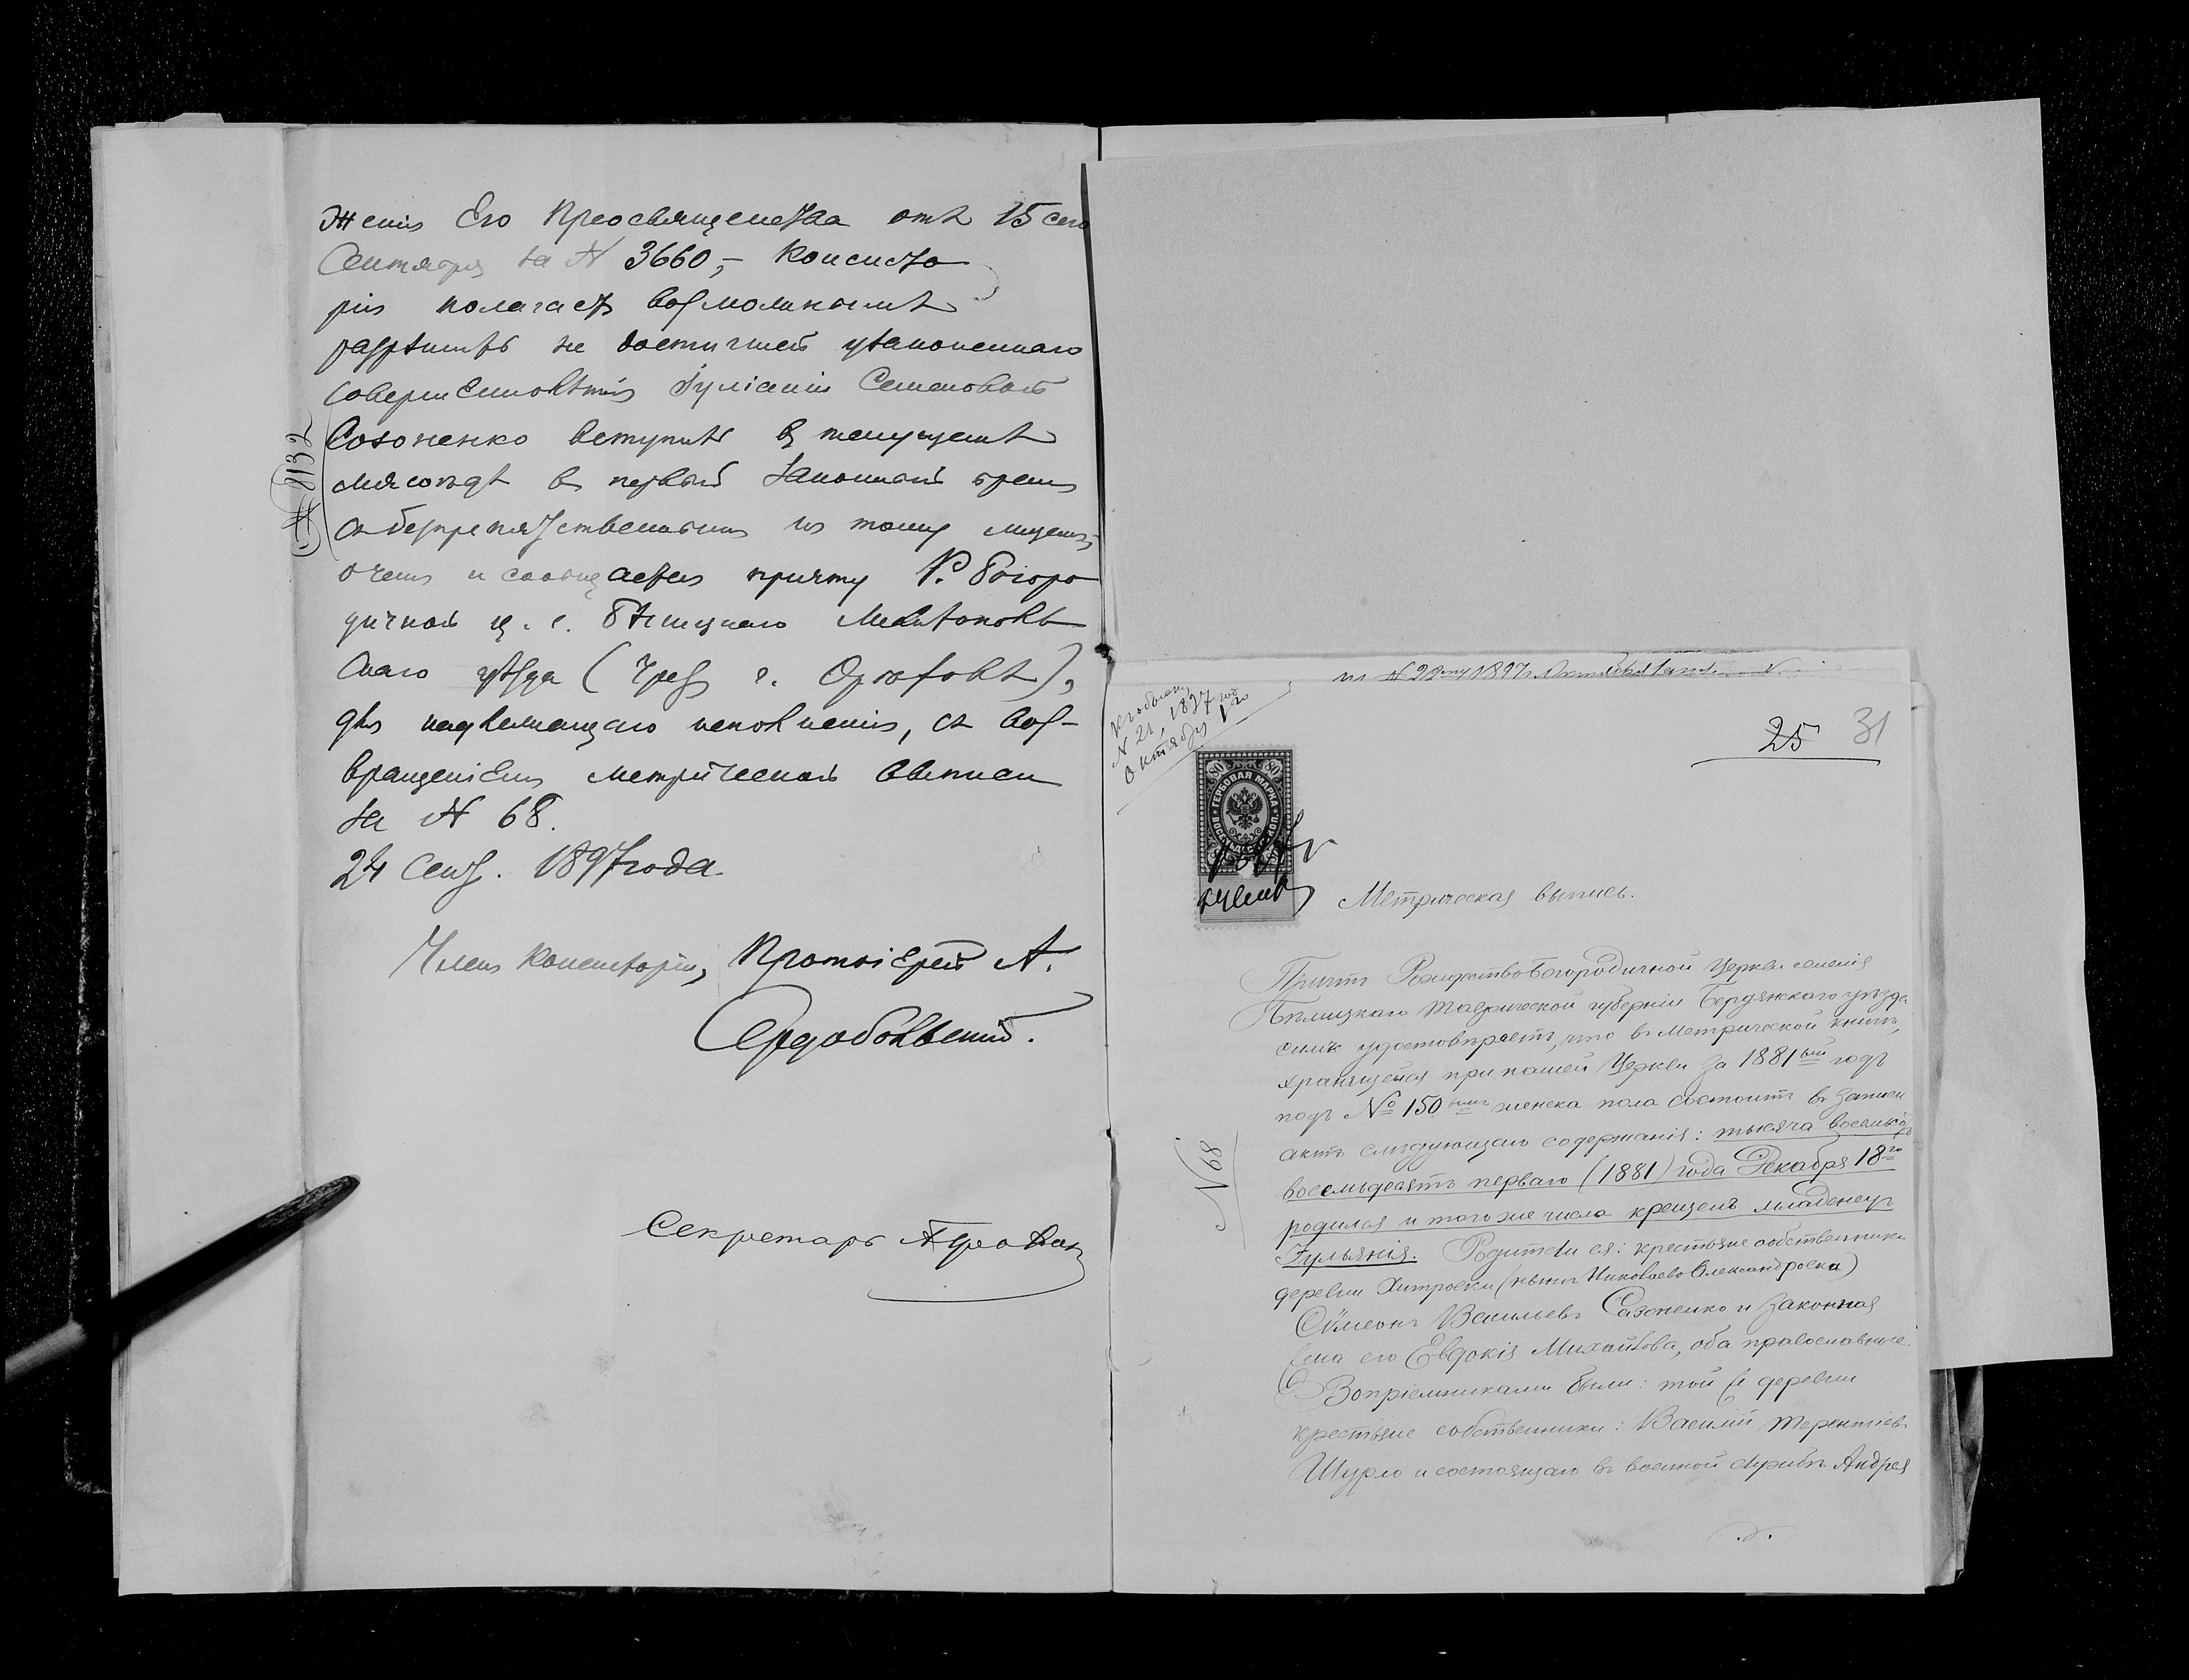 женія Его Преосвященства отъ 15 сего
Сентября за № 3660,- Консисто
рія полагаетъ возможнымъ
разрѣшить не достигшей установленнаго
совершеннолѣтія Іуліаніи Семеновой
Созоненко вступить въ текущемъ
мясоѣдѣ въ первый законный бракъ
съ безпрепятственнымъ къ тому лицемъ,
о чемъ и сообщается причту Р. Богоро
дичной ц. с. Бѣлицкаго Мелитополь
скаго уѣзда (чрез г. Орѣховъ),
для надлежащаго исполненія, съ воз-
вращеніемъ метрической выписи
за № 68.
24 Сент. 1897 года
Членъ Консисторіи, Протоіерей А.
Сердобольскій.
Секретарь
№ 8132
къ обыску
№ 21, 1897 год
Октября 1го
25 31
80 80
ГЕРБОВАЯ МАРКА
ВОСЕМЬДЕСЯТЪ КОП.
Метрическая выпись.
Причтъ Рождество Богородичной Церкви селенія
Бѣлицкаго Таврической губерніи Бердянскаго уѣзда
симъ удостовѣряетъ, что въ метрической книгѣ,
хранящейся при нашей Церкви за 1881ый годъ
подъ № 150ымъ женска пола состоитъ въ записи
актъ слѣдующаго содержанія: тысяча восемьсотъ
восемьдесятъ перваго (1881) года Декабря 18го
родилась и того же числа крещенъ младенецъ
Іульянія. Родители ея: крестьяне собственники
деревни Хитровки (нынѣ Николаево Александровка)
Сѵмеонъ Васильевъ Сазоненко и законная
жена его Евдокія Михайлова, оба православные.
Вопріемниками были: той же деревни
крестьяне собственники: Василій Терентіевъ
Шурло и состоящаго въ военной службѣ Андрея
№ 68